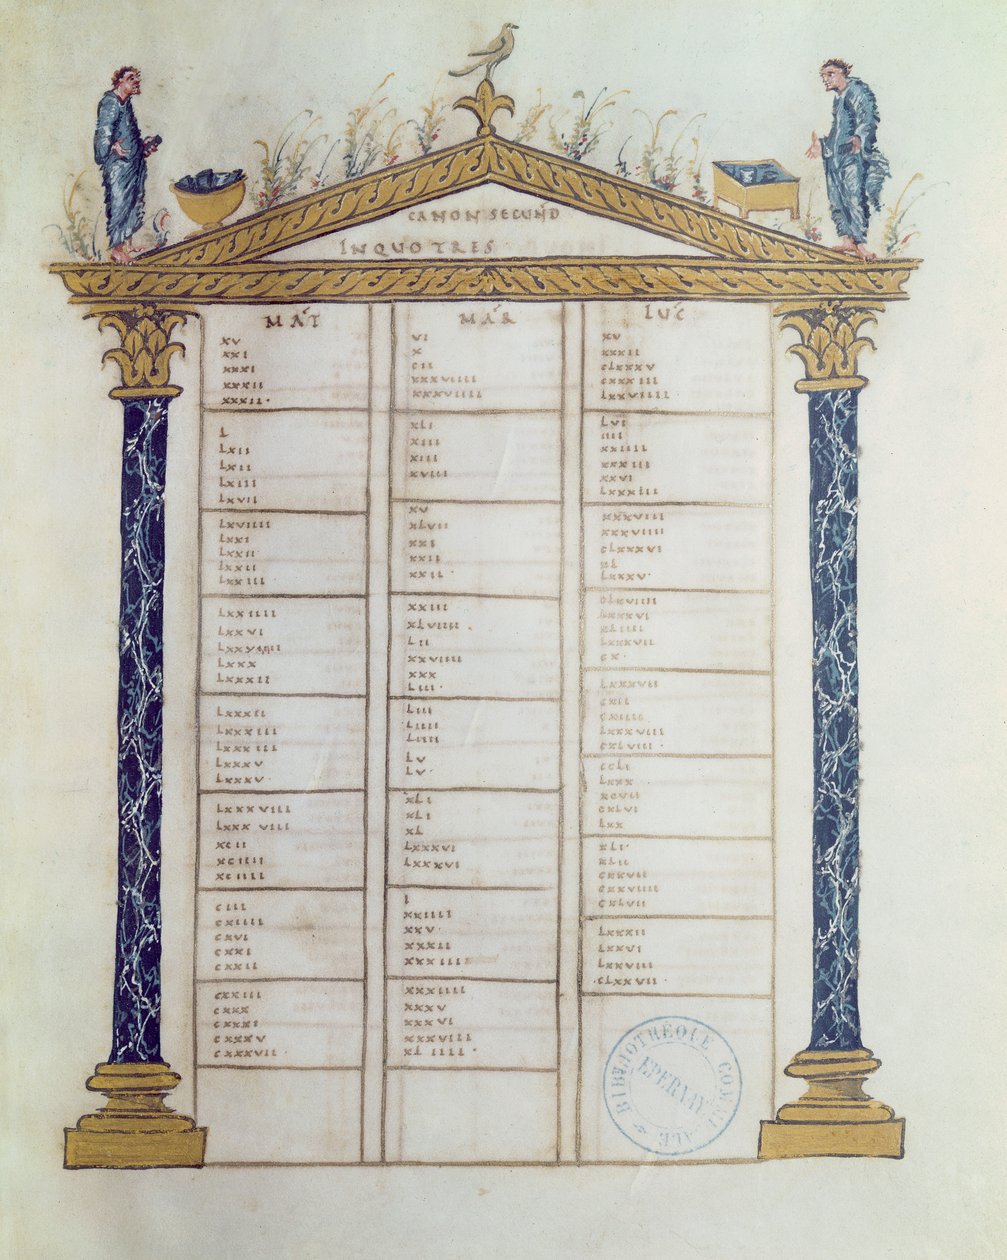 CANON SECUND
IN QUO TRES
MAT
xv
xxi
xxxi
xxxii
xxxii·
L
Lxii
Lxii
Lxiii
Lxvii
Lxviiii
Lxxi
Lxxii
Lxxii
Lxxiii
Lxxiiii
Lxxvi
Lxxx
Lxxxii
Lxxxii
Lxxxiii
Lxxxiii
Lxxxv
Lxxxv·
Lxxxviii
Lxxxviii
xcii
xciiii
xciiii
ciii
cxiiii
cxvi
cxxi
cxxii
cxxiii
cxxx
cxxxi
cxxxv
cxxxvii
MAR
vi
x
cii
xxxviiii
xxxviiii
xLi
xiii
xiii
xviii
xv
xLvii
xxi
xxii
xxii·
xxiii
xLviiii
Lii
xxviiii
xxx
Liii
Liii
Liiii
Liiii
Lv
Lv
xLi
xLi
xL
Lxxxvi
Lxxxvi
L
xxiiii
xxv
xxxii
xxxiii
xxxiiii
xxxv
xxxvi
xxxviii
xLiiii·
LUC
xv
xxxii
cLxxxv
cxxxiii
Lxxviiii
Lvi
iiii
xxiiii
xxxiii
xxvi
Lxxxiii
xxxviii
xxxviiii
cLxxxvi
xL
Lxxxv·
Lxxxvi
Lxxxvii
cx·
Lxxxvii
cxii
cxiiii
Lxxxviii
cxLviii
ccLi
Lxxx
xcvii
cxLvi
Lxx
xLi·
xLii
cxxvii
cxxviiii
cxLvii
Lxxxii
Lxxvi
Lxxviii
cLxxvii
BIBLIOTHEQUE COMMUNALE
EPERNAY